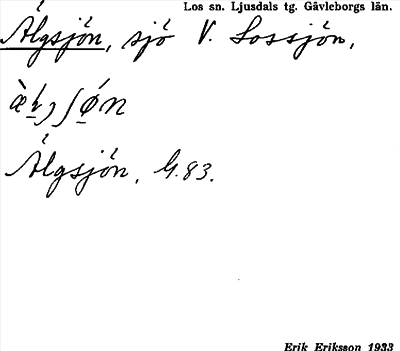 Los sn. Ljusdals tg. Gävleborgs län.
Älgsjön, sjö V. Lossjön,
Älgsjön. G. 83.
Erik Eriksson 1933